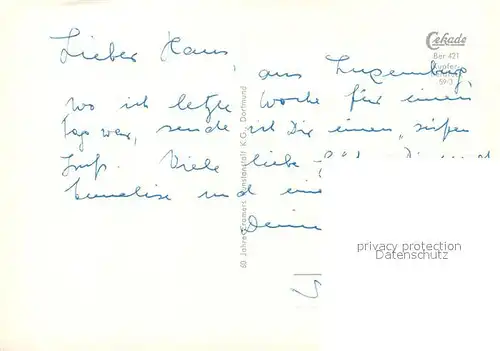 Lieber Hans,
aus Luxemburg,
wo ich letzte Woche für einen
Tag war, sende ich Dir einen „süßen
Gruß. Viele liebe
Annelise und eine
Deine
Cekade
Ber 421
Kupfer
59/3
60 Jahre Cramers Kunstanstalt K.G., Dortmund
privacy protection
Datenschutz